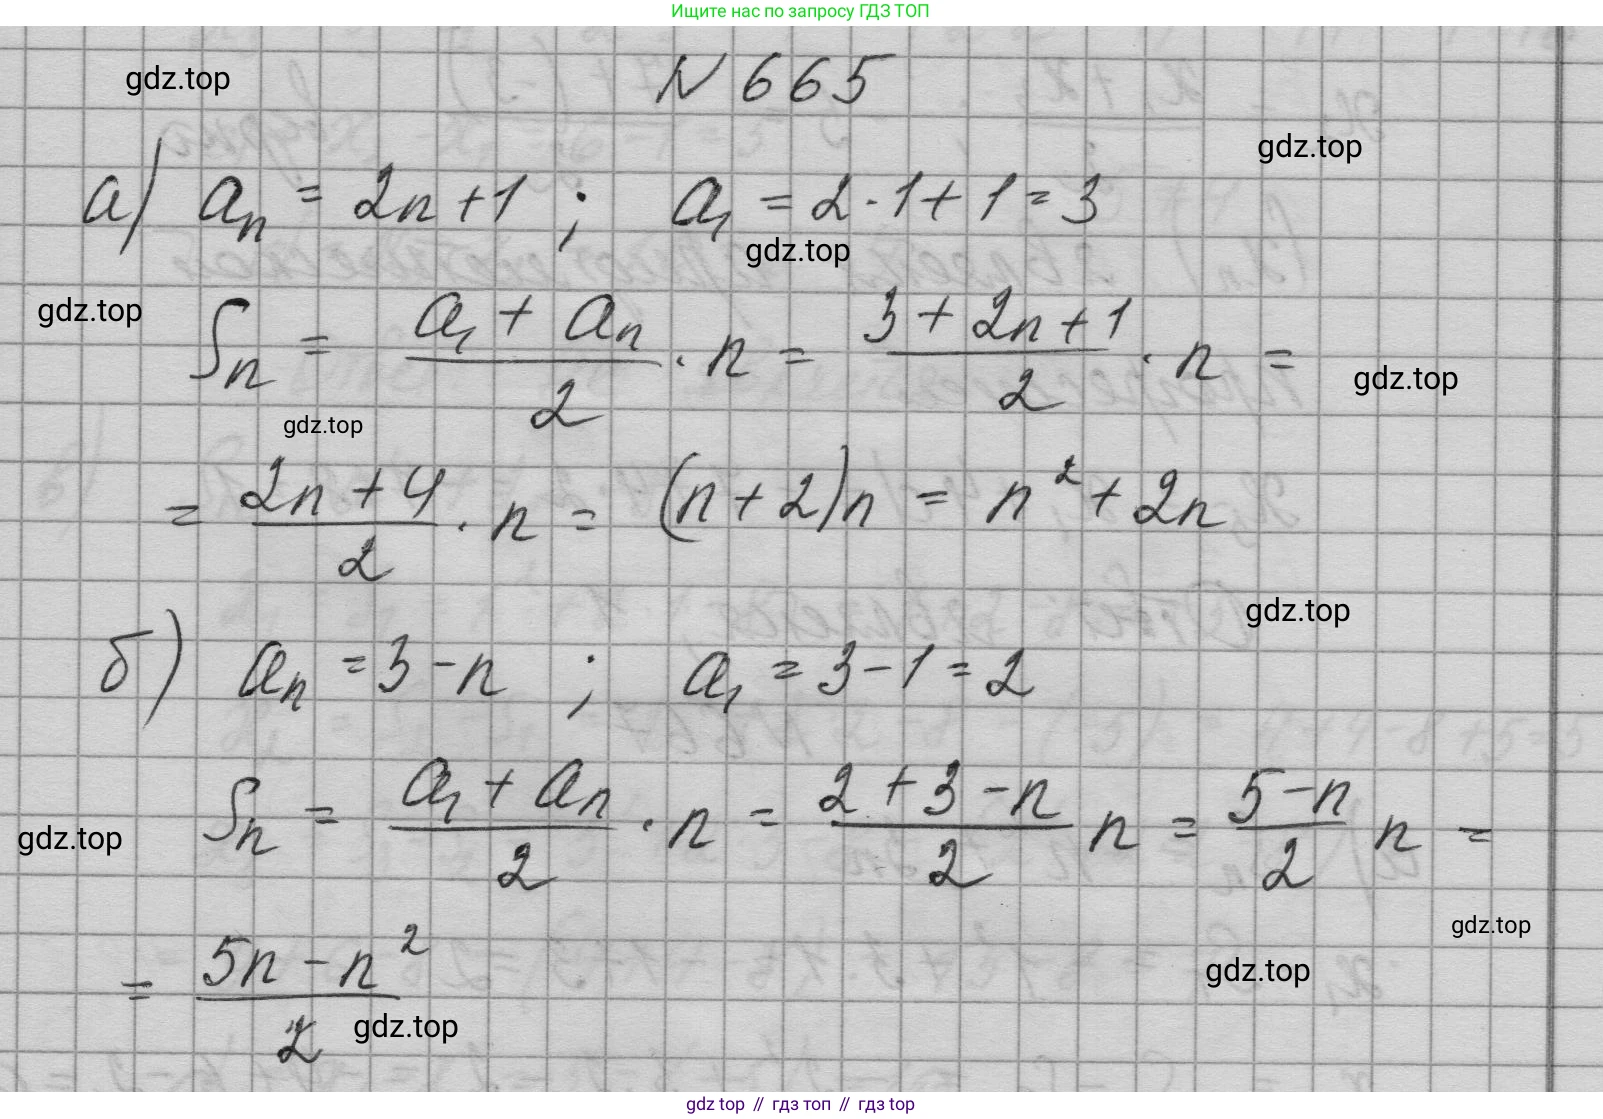 Ищите нас по запросу ГДЗ ТОП
N 665
gdz.top
gdz.top
а) aₙ = 2n + 1 ; a₁ = 2 · 1 + 1 = 3
gdz.top
gdz.top
Sₙ = (a₁ + aₙ)/2 · n = (3 + 2n + 1)/2 · n =
gdz.top
gdz.top
= (2n + 4)/2 · n = (n + 2)n = n² + 2n
gdz.top
б) aₙ = 3 - n ; a₁ = 3 - 1 = 2
Sₙ = (a₁ + aₙ)/2 · n = (2 + 3 - n)/2 n = (5 - n)/2 n =
gdz.top
gdz.top
= (5n - n²)/2
gdz.top
gdz.top
gdz top // гдз топ // gdz top